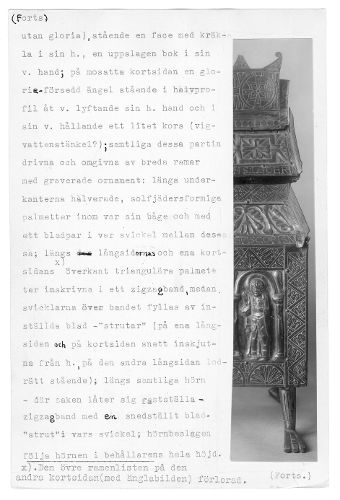 (Forts)
utan gloria), stående en face med kräk-
la i sin h., en uppslagen bok i sin
v. hand; på mosatta kortsidan en glo-
ria-försedd ängel stående i halvpro-
fil åt v. lyftande sin h. hand och i
sin v. hållande ett litet kors (vig-
vattenstänkel?); samtliga dessa partin
drivna och omgivna av breda ramar
med graverade ornament: långs under-
kanterna halverade, solfjädersformiga
palmetter inom var sin båge och med
ett bladpar i var svickel mellan dessa
sa; långs långsidornas och ena kort-
x)
sidans överkant triangulära palmet-
ter inskrivna i ett zigzagband, medan
svicklarna över bandet fyllas av in-
ställda blad -"strutar" (på ena lång-
sidan och på kortsidan snett inskjut-
na från h., på den andra långsidan lod-
rätt stående); längs samtliga hörn
- där saken låter sig fastställa -
zigzagband med en snedställt blad-
"strut" i vars svickel; hörnbeslagen
följa hörnen i behållarens hela höjd.
x). Den övre ramenlisten på den
andra kortsidan(med änglabilden) förlorad.
(Forts.)